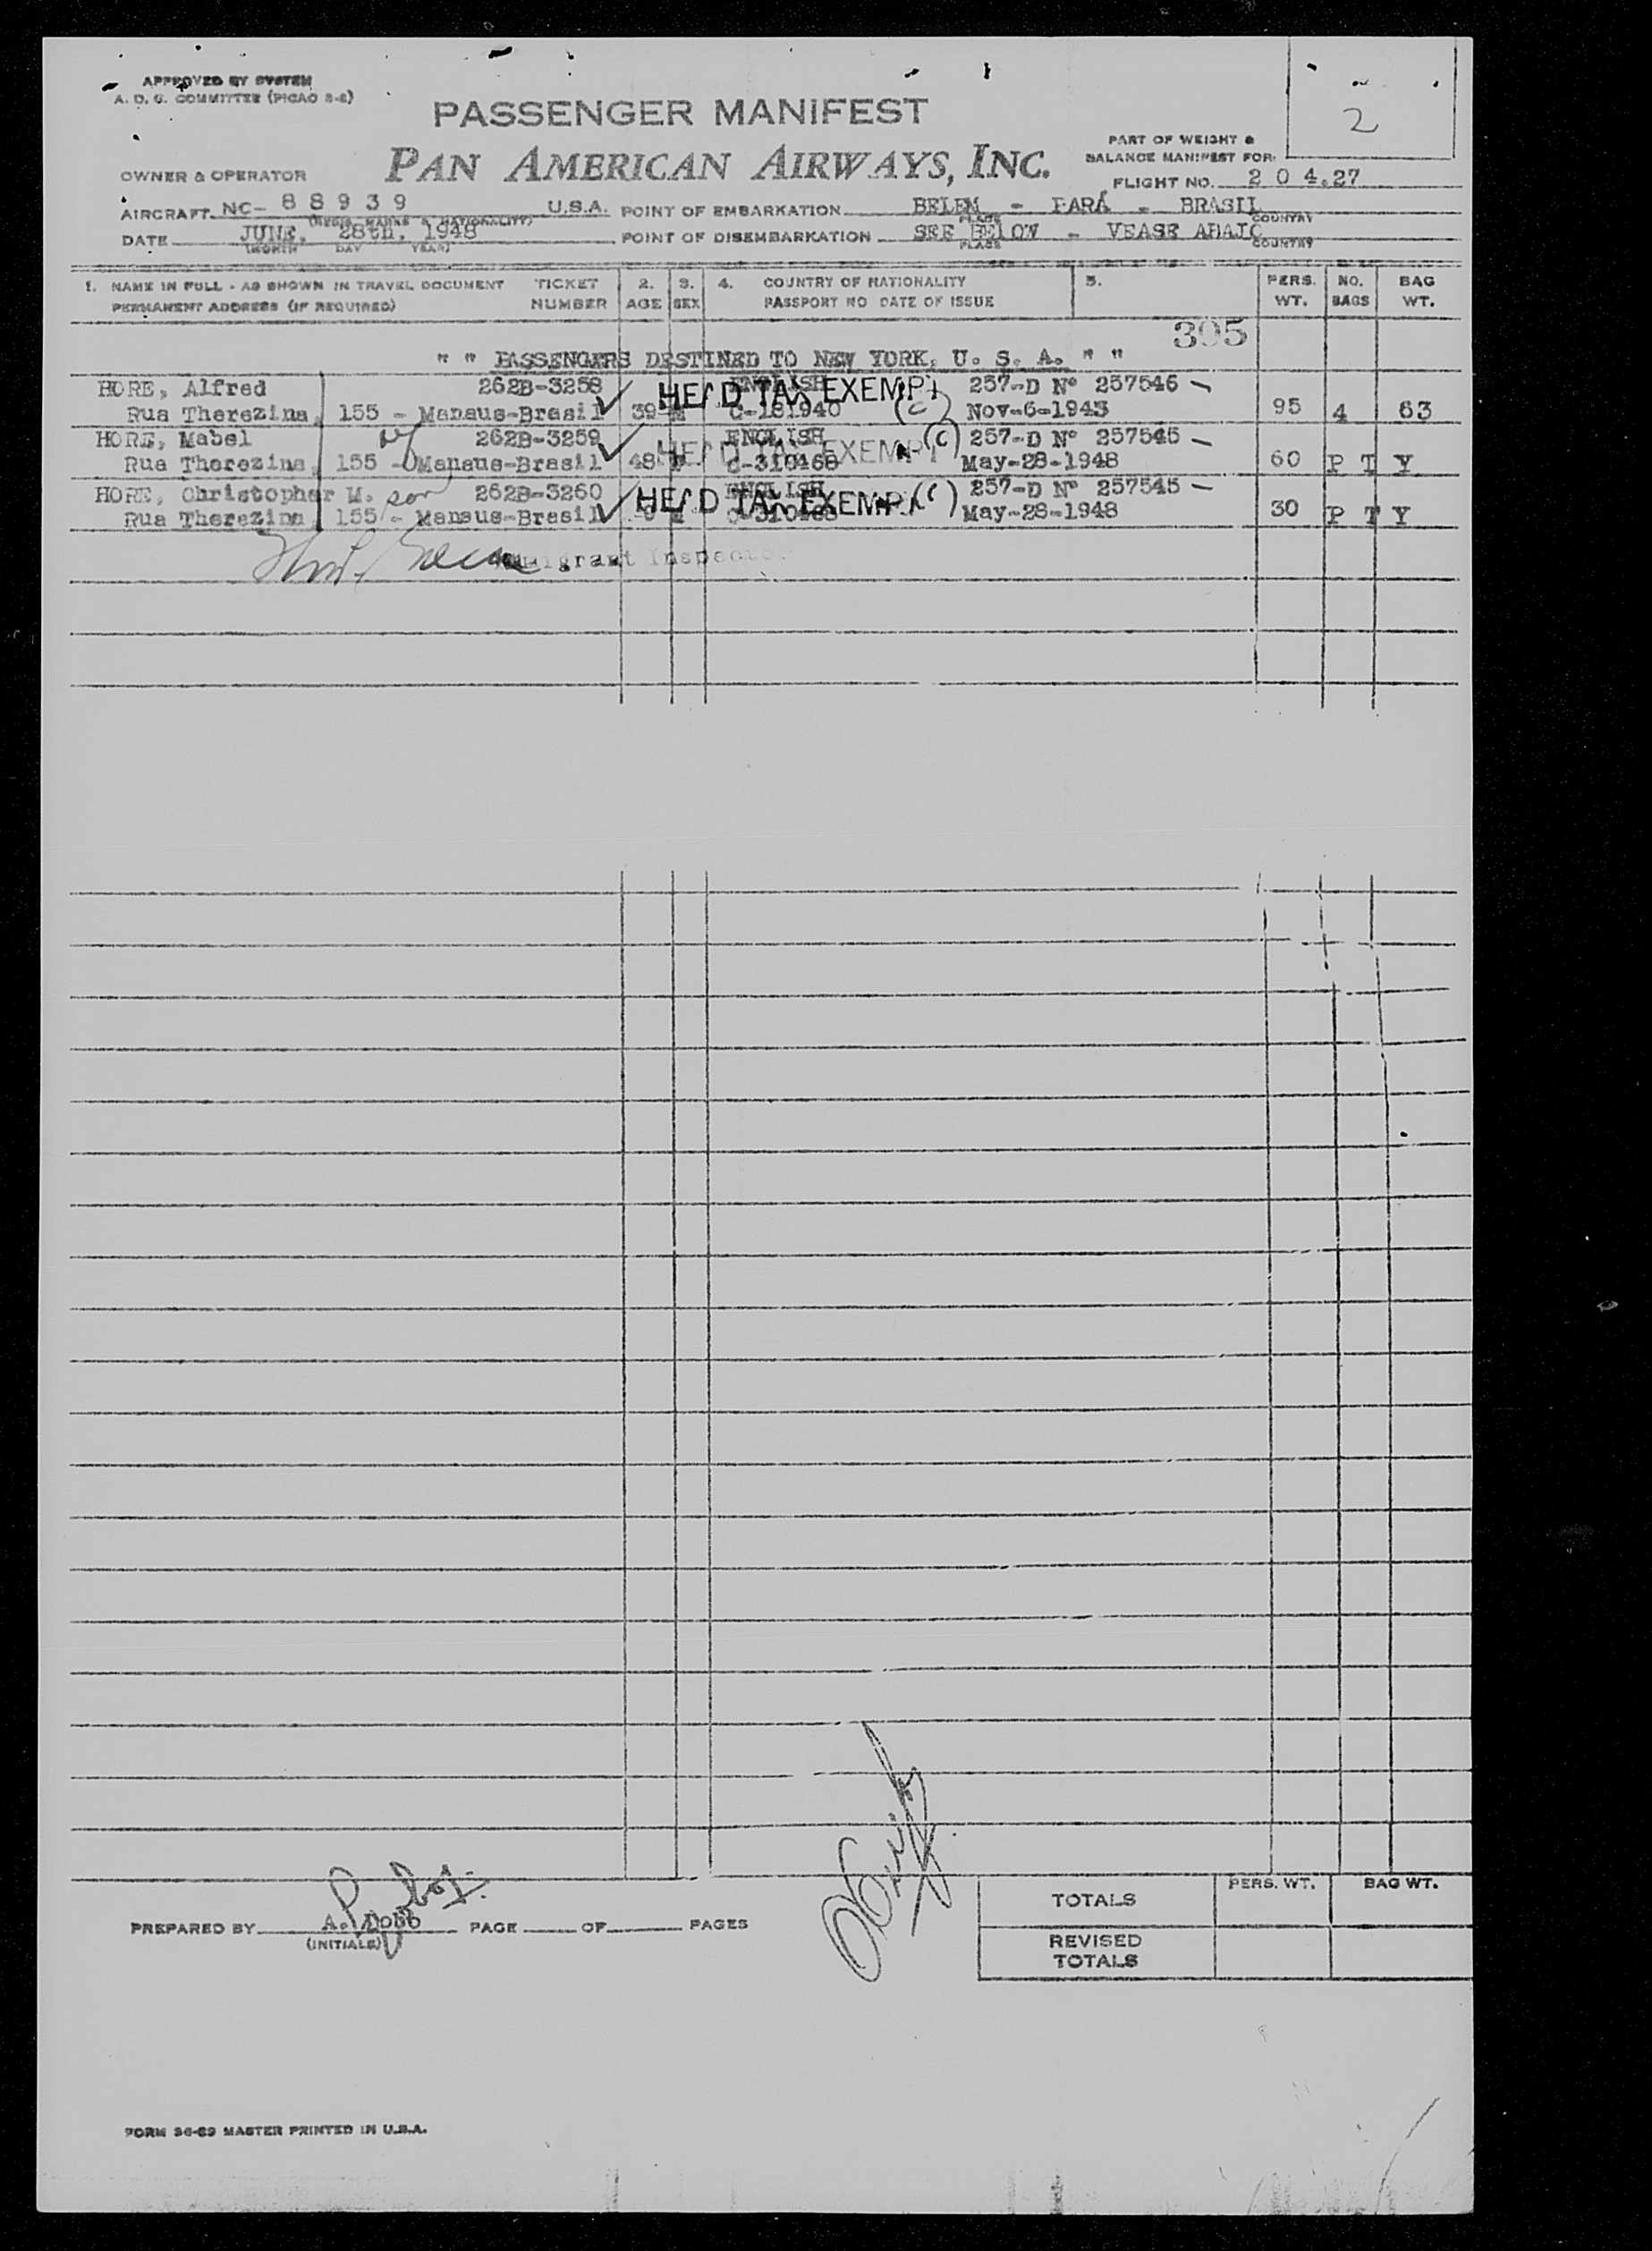 APPROVED BY SYSTEM
A. D. G. COMMITTEE (PICAO 2-2)
2
PASSENGER MANIFEST
PAN AMERICAN AIRWAYS, INC.
PART OF WEIGHT &
BALANCE MANIFEST FOR:
OWNER & OPERATOR
FLIGHT NO. 2 0 4.27
AIRCRAFT NC- 8 8 9 3 9 U.S.A. POINT OF EMBARKATION BELEM - PARÁ - BRASIL
(REGIS. MARKS & NATIONALITY) PLACE COUNTRY
DATE JUNE, 28th, 1948 POINT OF DISEMBARKATION SEE BELOW - VEASE ABAJO
(MONTH DAY YEAR) PLACE COUNTRY
1. NAME IN FULL - AS SHOWN IN TRAVEL DOCUMENT TICKET 2. 3. 4. COUNTRY OF NATIONALITY 5. PERS. NO. BAG
PERMANENT ADDRESS (IF REQUIRED) NUMBER AGE SEX PASSPORT NO DATE OF ISSUE WT. BAGS WT.
305
" " PASSENGERS DESTINED TO NEW YORK, U. S. A. " "
HORE, Alfred 262B-3258 ENGLISH HEAD TAX EXEMPT 257-D Nº 257546
Rua Therezina, 155 - Manaus-Brasil 39 M C-181940 (c) Nov-6-1943 95 4 63
HORE, Mabel 262B-3259 ENGLISH HEAD TAX EXEMPT (c) 257-D Nº 257545
Rua Therezina, 155 - Manaus-Brasil 48 F C-310468 May-28-1948 60 P T Y
HORE, Christopher M. son 262B-3260 ENGLISH HEAD TAX EXEMPT (c) 257-D Nº 257545
Rua Therezina, 155 - Manaus-Brasil M C-310468 May-28-1948 30 P T Y
Immigrant Inspector
TOTALS PERS. WT. BAG WT.
PREPARED BY A. PAGE OF PAGES
(INITIALS)
REVISED
TOTALS
FORM 36-29 MASTER PRINTED IN U.S.A.